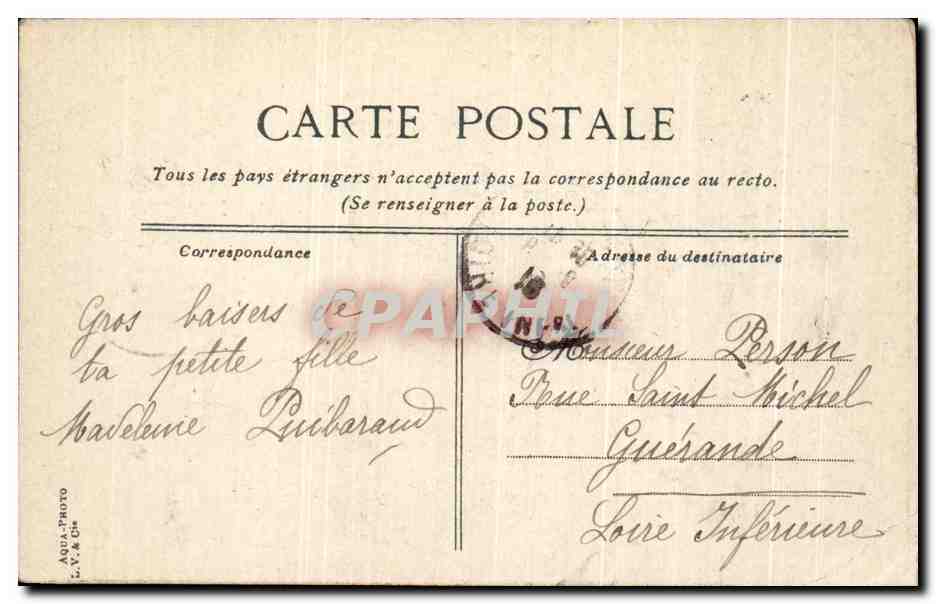 CARTE POSTALE
Tous les pays étrangers n'acceptent pas la correspondance au recto.
(Se renseigner à la poste.)
Correspondance
Adresse du destinataire
CPAPHIL
Gros baisers de
ta petite fille
Madeleine
Monsieur Person
Rue Saint Michel
Guérande
Loire Inférieure
AQUA-PHOTO
L.V. & Cie